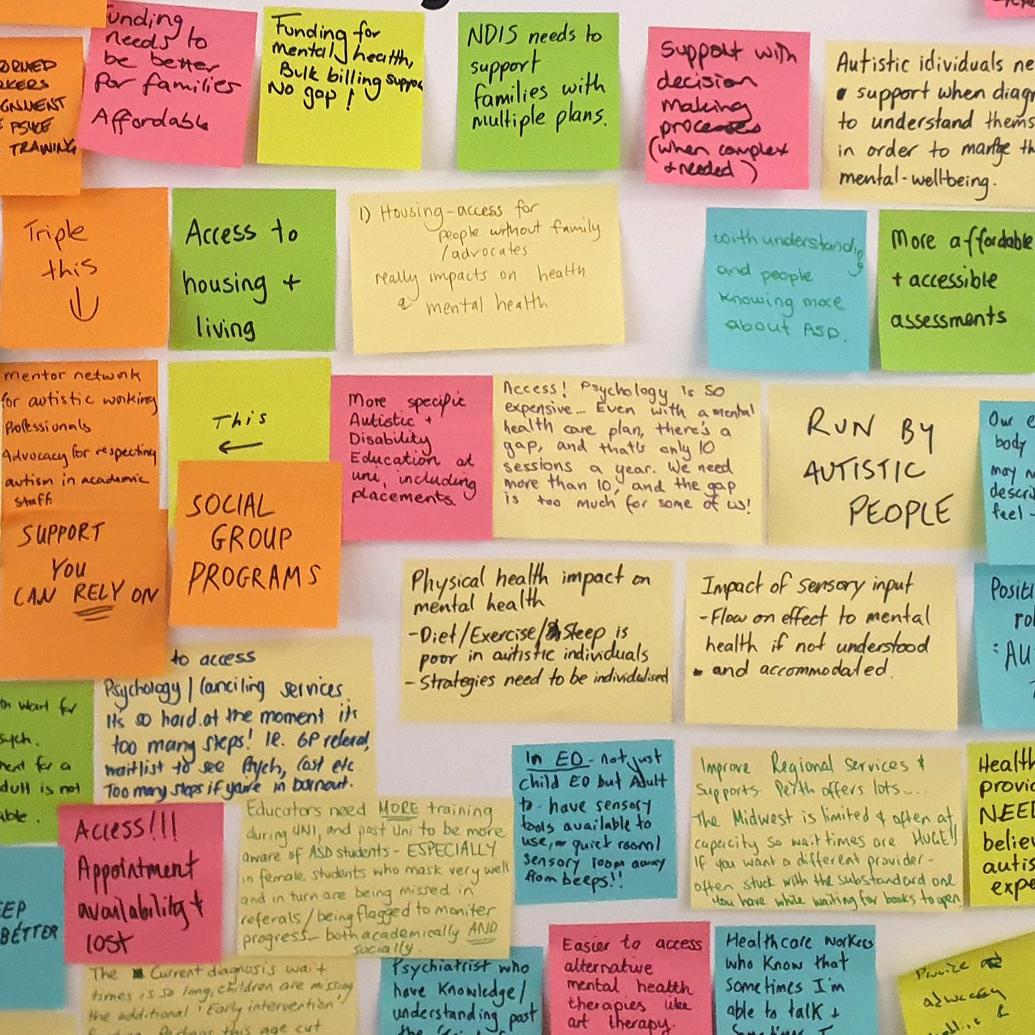 Funding
needs to
be better
for families
Affordable
Funding for
mental health,
Bulk billing support
No gap!
NDIS needs to
support
families with
multiple plans.
Support with
decision
making
processes
(when complex
+ needed)
Autistic idividuals
support when
to understand
in order to
mental-wellbeing.
TRAINING
Triple
this
Access to
housing +
living
1) Housing-access for
people without family
/advocates
really impacts on health
& mental health
with understanding
and people
knowing more
about ASD.
More affordable
+ accessible
assessments
mentor network
for autistic working
Professionals
Advocacy for respecting
autism in academic
staff
This
More specific
Autistic +
Disability
Education at
uni, including
placements.
Access! Psychology is so
expensive... Even with a mental
health care plan, there's a
gap, and that's only 10
sessions a year. We need
more than 10, and the gap
is too much for some of us!
RUN BY
AUTISTIC
PEOPLE
Our
body
may
feel-
SUPPORT
YOU
CAN RELY ON
SOCIAL
GROUP
PROGRAMS
Physical health impact on
mental health
-Diet/Exercise/Sleep is
poor in autistic individuals
- Strategies need to be individualised
Impact of sensory input
-Flow on effect to mental
health if not understood
- and accommodated.
to access
Psychology/Canciling services.
It's so hard at the moment its
too many steps! IE. GP referal,
waitlist to see Psych, Cost etc
Too many steps if you're in burnout.
wait for
for a
is not
In ED - not just
child ED but Adult
to have sensory
tools available to
use, quiet room/
sensory room away
from beeps!!
Improve Regional Services &
Supports. Perth offers lots....
The Midwest is limited & often at
capacity so wait times are HUGE!!
If you want a different provider-
often stuck with the substandard one
you have while waiting for books to open
Health
NEED
Access!!!
Appointment
availability +
cost
Educators need MORE training
during UNI, and past Uni to be more
aware of ASD students - ESPECIALLY
in female students who mask very well
and in turn are being missed in
referrals/being flagged to moniter
progress - both academically AND
socially.
BETTER
The Current diagnosis wait
times is so long, children are missing
the additional 'Early intervention'
this age cut
Psychiatrist who
have knowledge/
understanding past
Easier to access
alternative
mental health
therapies like
art therapy.
Healthcare workers
who know that
sometimes I'm
able to talk +
Sometimes I